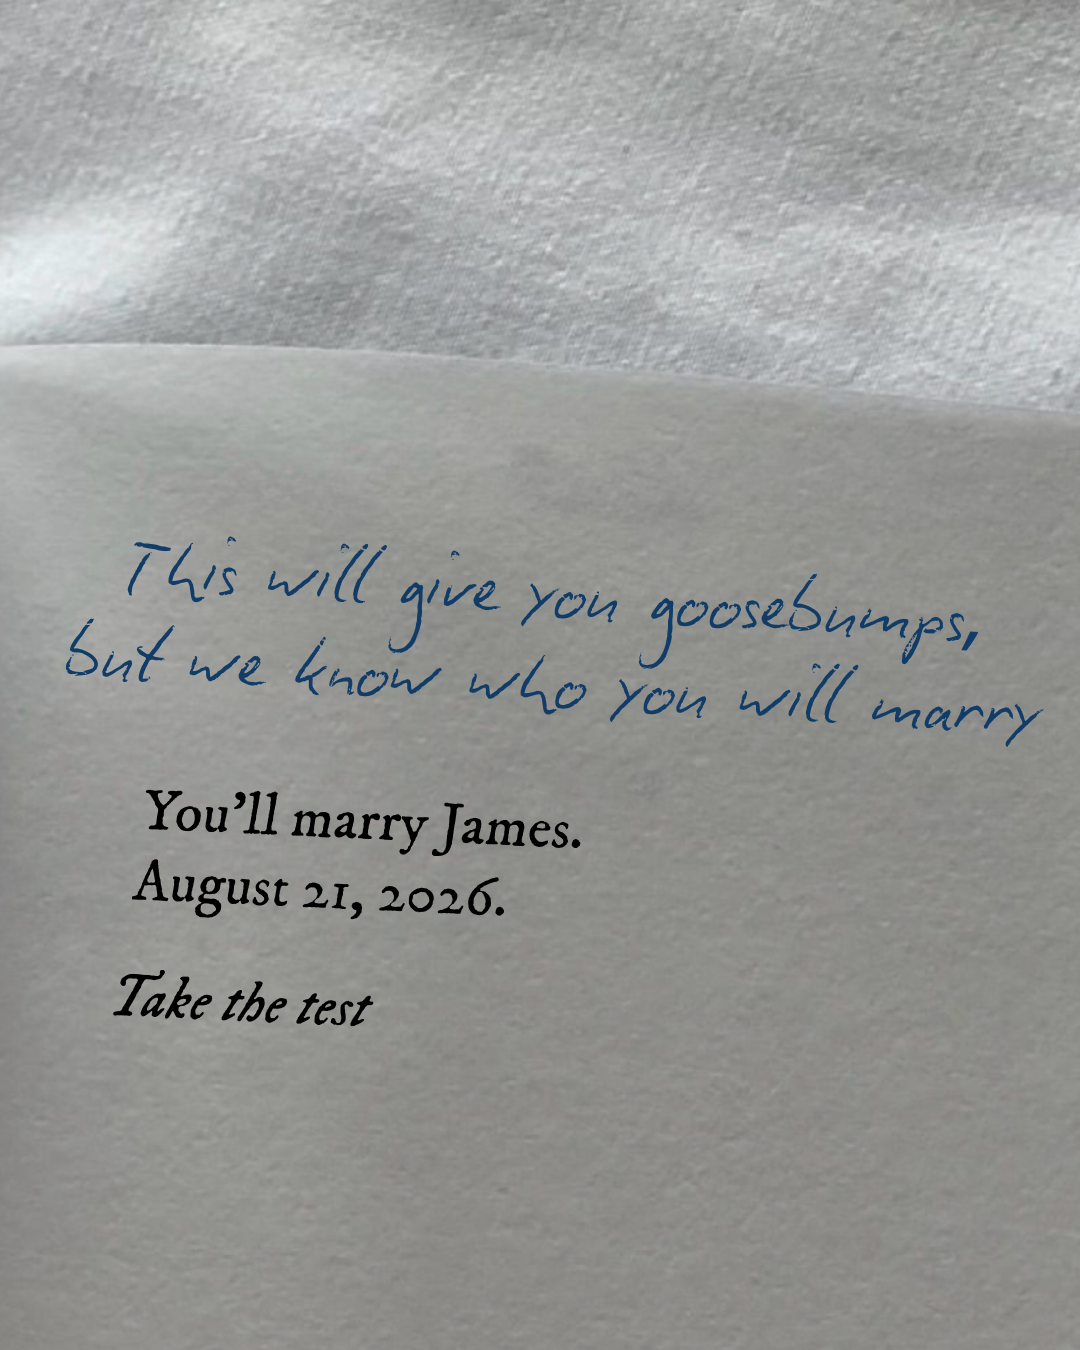 This will give you goosebumps,
but we know who you will marry
You’ll marry James.
August 21, 2026.
Take the test